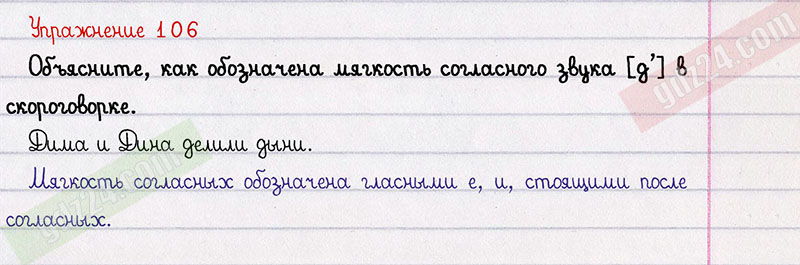 Упражнение 106
Объясните, как обозначена мягкость согласного звука [д’] в
скороговорке.
Дима и Дина делили дыни.
Мягкость согласных обозначена гласными е, и, стоящими после
согласных.
gdz24.com
gdz24.com